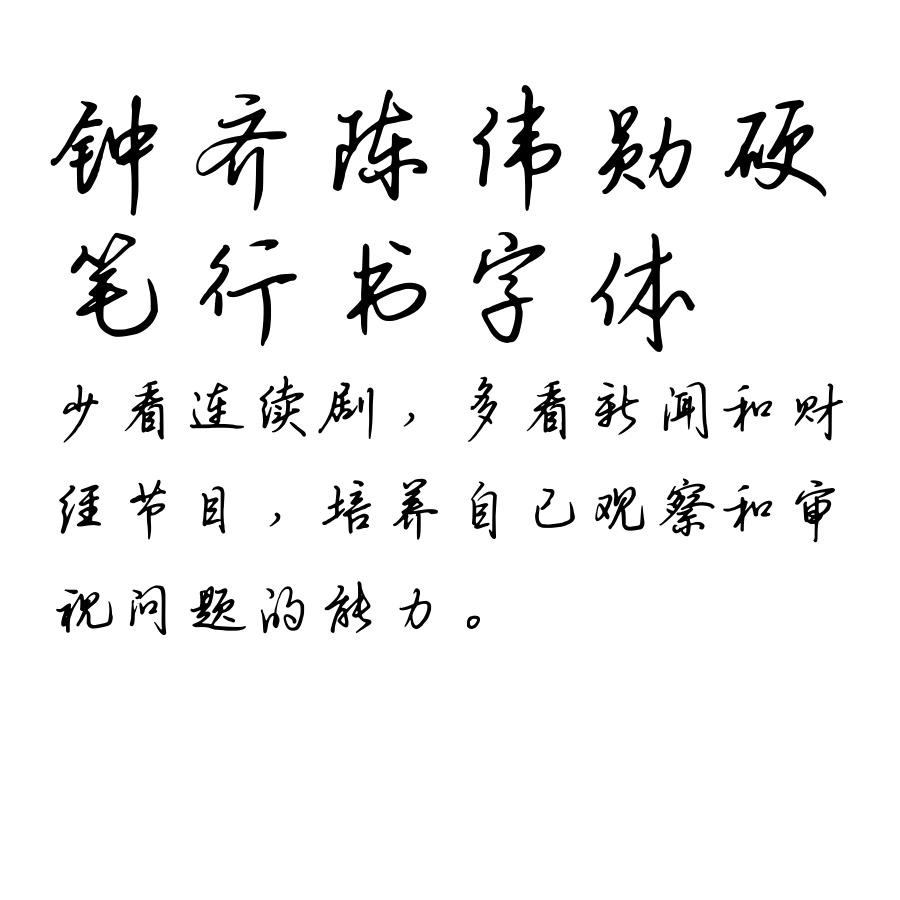 钟齐陈伟勋硬
笔行书字体
少看连续剧，多看新闻和财
经节目，培养自己观察和审
视问题的能力。